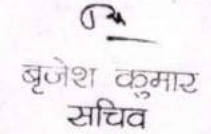 बृजेश कुमार
सचिव